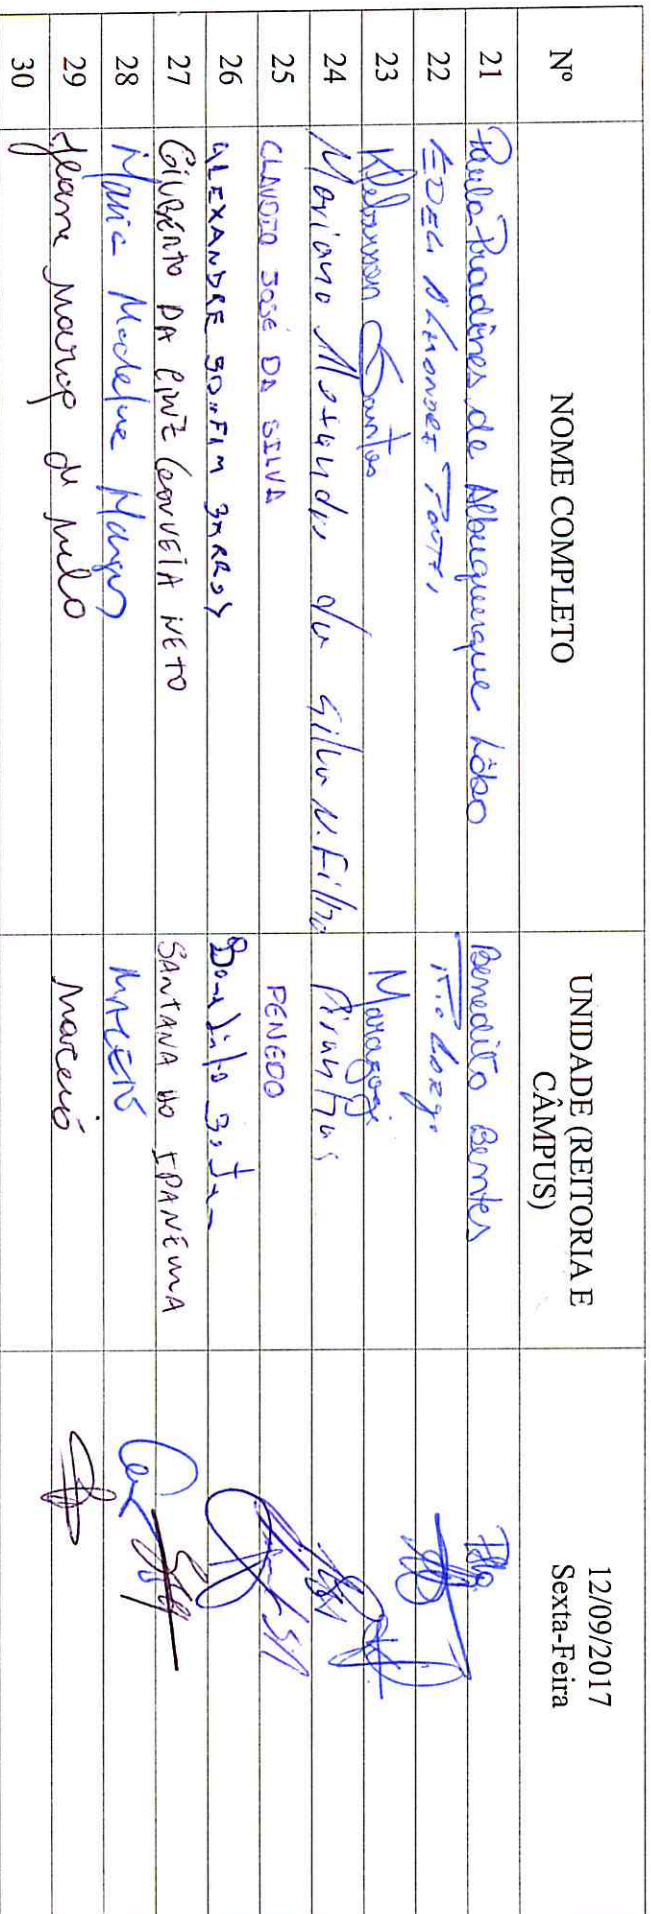 Nº NOME COMPLETO UNIDADE (REITORIA E CÂMPUS) 12/09/2017 Sexta-Feira
21 Paula Pradines de Albuquerque Lôbo Benedito Bentes
22 EDEL Rio Largo
23 Klebersson Santos Maragogi
24 Mariano da Silva N. Filho Piranhas
25 CLAUDIO JOSÉ DA SILVA PENEDO
26 ALEXANDRE BOMFIM BARROS
27 GILBERTO DA CRUZ GOUVEIA NETO SANTANA DO IPANEMA
28 Maria MACEIÓ
29 Jeane de Melo Maceió
30